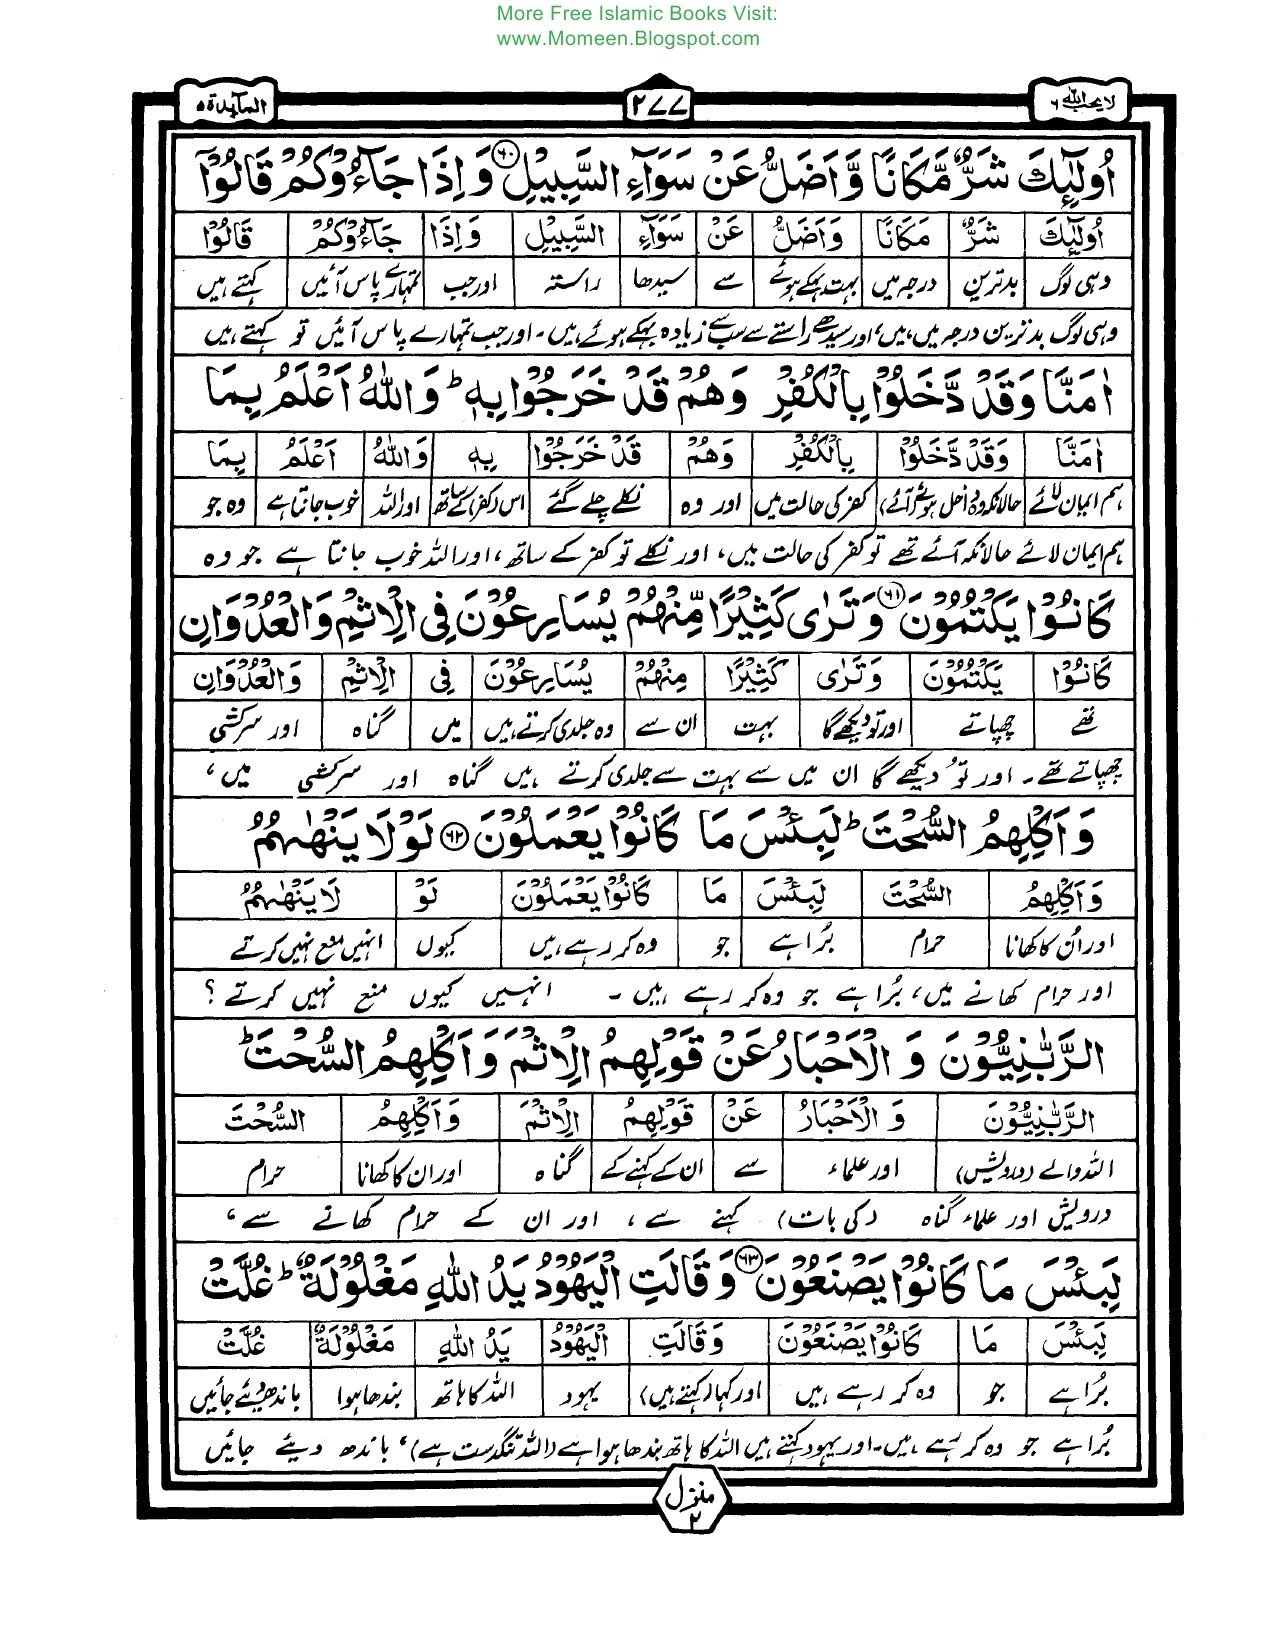 More Free Islamic Books Visit:
www.Momeen.Blogspot.com
لا یحب اللہ ٦ ٢٧٧ المآیدة ٥
اُولٰٓئِكَ شَرٌّ مَّكَانًا وَّاَضَلُّ عَنْ سَوَآءِ السَّبِيْلِ ٦٠ وَاِذَا جَآءُوْكُمْ قَالُوْٓا
اُولٰٓئِكَ شَرٌّ مَكَانًا وَّاَضَلُّ عَنْ سَوَآءِ السَّبِيْلِ وَاِذَا جَآءُوْكُمْ قَالُوْٓا
وہی لوگ بدترین درجہ میں بہت بہکے ہوئے سے سیدھا راستہ اور جب تمہارے پاس آئیں کہتے ہیں
وہی لوگ بدترین درجہ میں ہیں، اور سیدھے راستے سے سب سے زیادہ بہکے ہوئے ہیں۔ اور جب تمہارے پاس آئیں تو کہتے ہیں
اٰمَنَّا وَقَدْ دَّخَلُوْا بِالْكُفْرِ وَهُمْ قَدْ خَرَجُوْا بِهٖ ؕ وَاللّٰهُ اَعْلَمُ بِمَا
اٰمَنَّا وَقَدْ دَّخَلُوْا بِالْكُفْرِ وَهُمْ قَدْ خَرَجُوْا بِهٖ وَاللّٰهُ اَعْلَمُ بِمَا
ہم ایمان لائے حالانکہ وہ داخل ہوئے (آئے) کفر کی حالت میں اور وہ نکلے چلے گئے اس (کفر) کے ساتھ اور اللہ خوب جانتا ہے وہ جو
ہم ایمان لائے حالانکہ آئے تھے تو کفر کی حالت میں، اور نکلے تو کفر کے ساتھ، اور اللہ خوب جانتا ہے جو وہ
كَانُوْا يَكْتُمُوْنَ ٦١ وَتَرٰى كَثِيْرًا مِّنْهُمْ يُسَارِعُوْنَ فِى الْاِثْمِ وَالْعُدْوَانِ
كَانُوْا يَكْتُمُوْنَ وَتَرٰى كَثِيْرًا مِنْهُمْ يُسَارِعُوْنَ فِى الْاِثْمِ وَالْعُدْوَانِ
تھے چھپاتے اور تو دیکھے گا بہت ان سے وہ جلدی کرتے ہیں میں گناہ اور سرکشی
چھپاتے تھے۔ اور تُو دیکھے گا ان میں سے بہت سے جلدی کرتے ہیں گناہ اور سرکشی میں،
وَاَكْلِهِمُ السُّحْتَ ؕ لَبِئْسَ مَا كَانُوْا يَعْمَلُوْنَ ٦٢ لَوْلَا يَنْهٰىهُمُ
وَاَكْلِهِمُ السُّحْتَ لَبِئْسَ مَا كَانُوْا يَعْمَلُوْنَ لَوْ لَا يَنْهٰىهُمُ
اور اُن کا کھانا حرام بُرا ہے جو وہ کر رہے ہیں کیوں انہیں منع نہیں کرتے
اور حرام کھانے میں، بُرا ہے جو وہ کر رہے ہیں۔ انہیں کیوں منع نہیں کرتے؟
الرَّبّٰنِيُّوْنَ وَالْاَحْبَارُ عَنْ قَوْلِهِمُ الْاِثْمَ وَاَكْلِهِمُ السُّحْتَ ؕ
الرَّبّٰنِيُّوْنَ وَالْاَحْبَارُ عَنْ قَوْلِهِمُ الْاِثْمَ وَاَكْلِهِمُ السُّحْتَ
اللہ والے (درویش) اور علماء سے ان کے کہنے کے گناہ اور ان کا کھانا حرام
درویش اور علماء گناہ (کی بات) کہنے سے، اور ان کے حرام کھانے سے،
لَبِئْسَ مَا كَانُوْا يَصْنَعُوْنَ ٦٣ وَقَالَتِ الْيَهُوْدُ يَدُ اللّٰهِ مَغْلُوْلَةٌ ؕ غُلَّتْ
لَبِئْسَ مَا كَانُوْا يَصْنَعُوْنَ وَقَالَتِ الْيَهُوْدُ يَدُ اللّٰهِ مَغْلُوْلَةٌ غُلَّتْ
بُرا ہے جو وہ کر رہے ہیں اور کہا (کہتے ہیں) یہود اللہ کا ہاتھ بندھا ہوا باندھ دیئے جائیں
بُرا ہے جو وہ کر رہے ہیں۔ اور یہود کہتے ہیں اللہ کا ہاتھ بندھا ہوا ہے (اللہ تنگدست ہے)، باندھ دیئے جائیں
منزل ٢